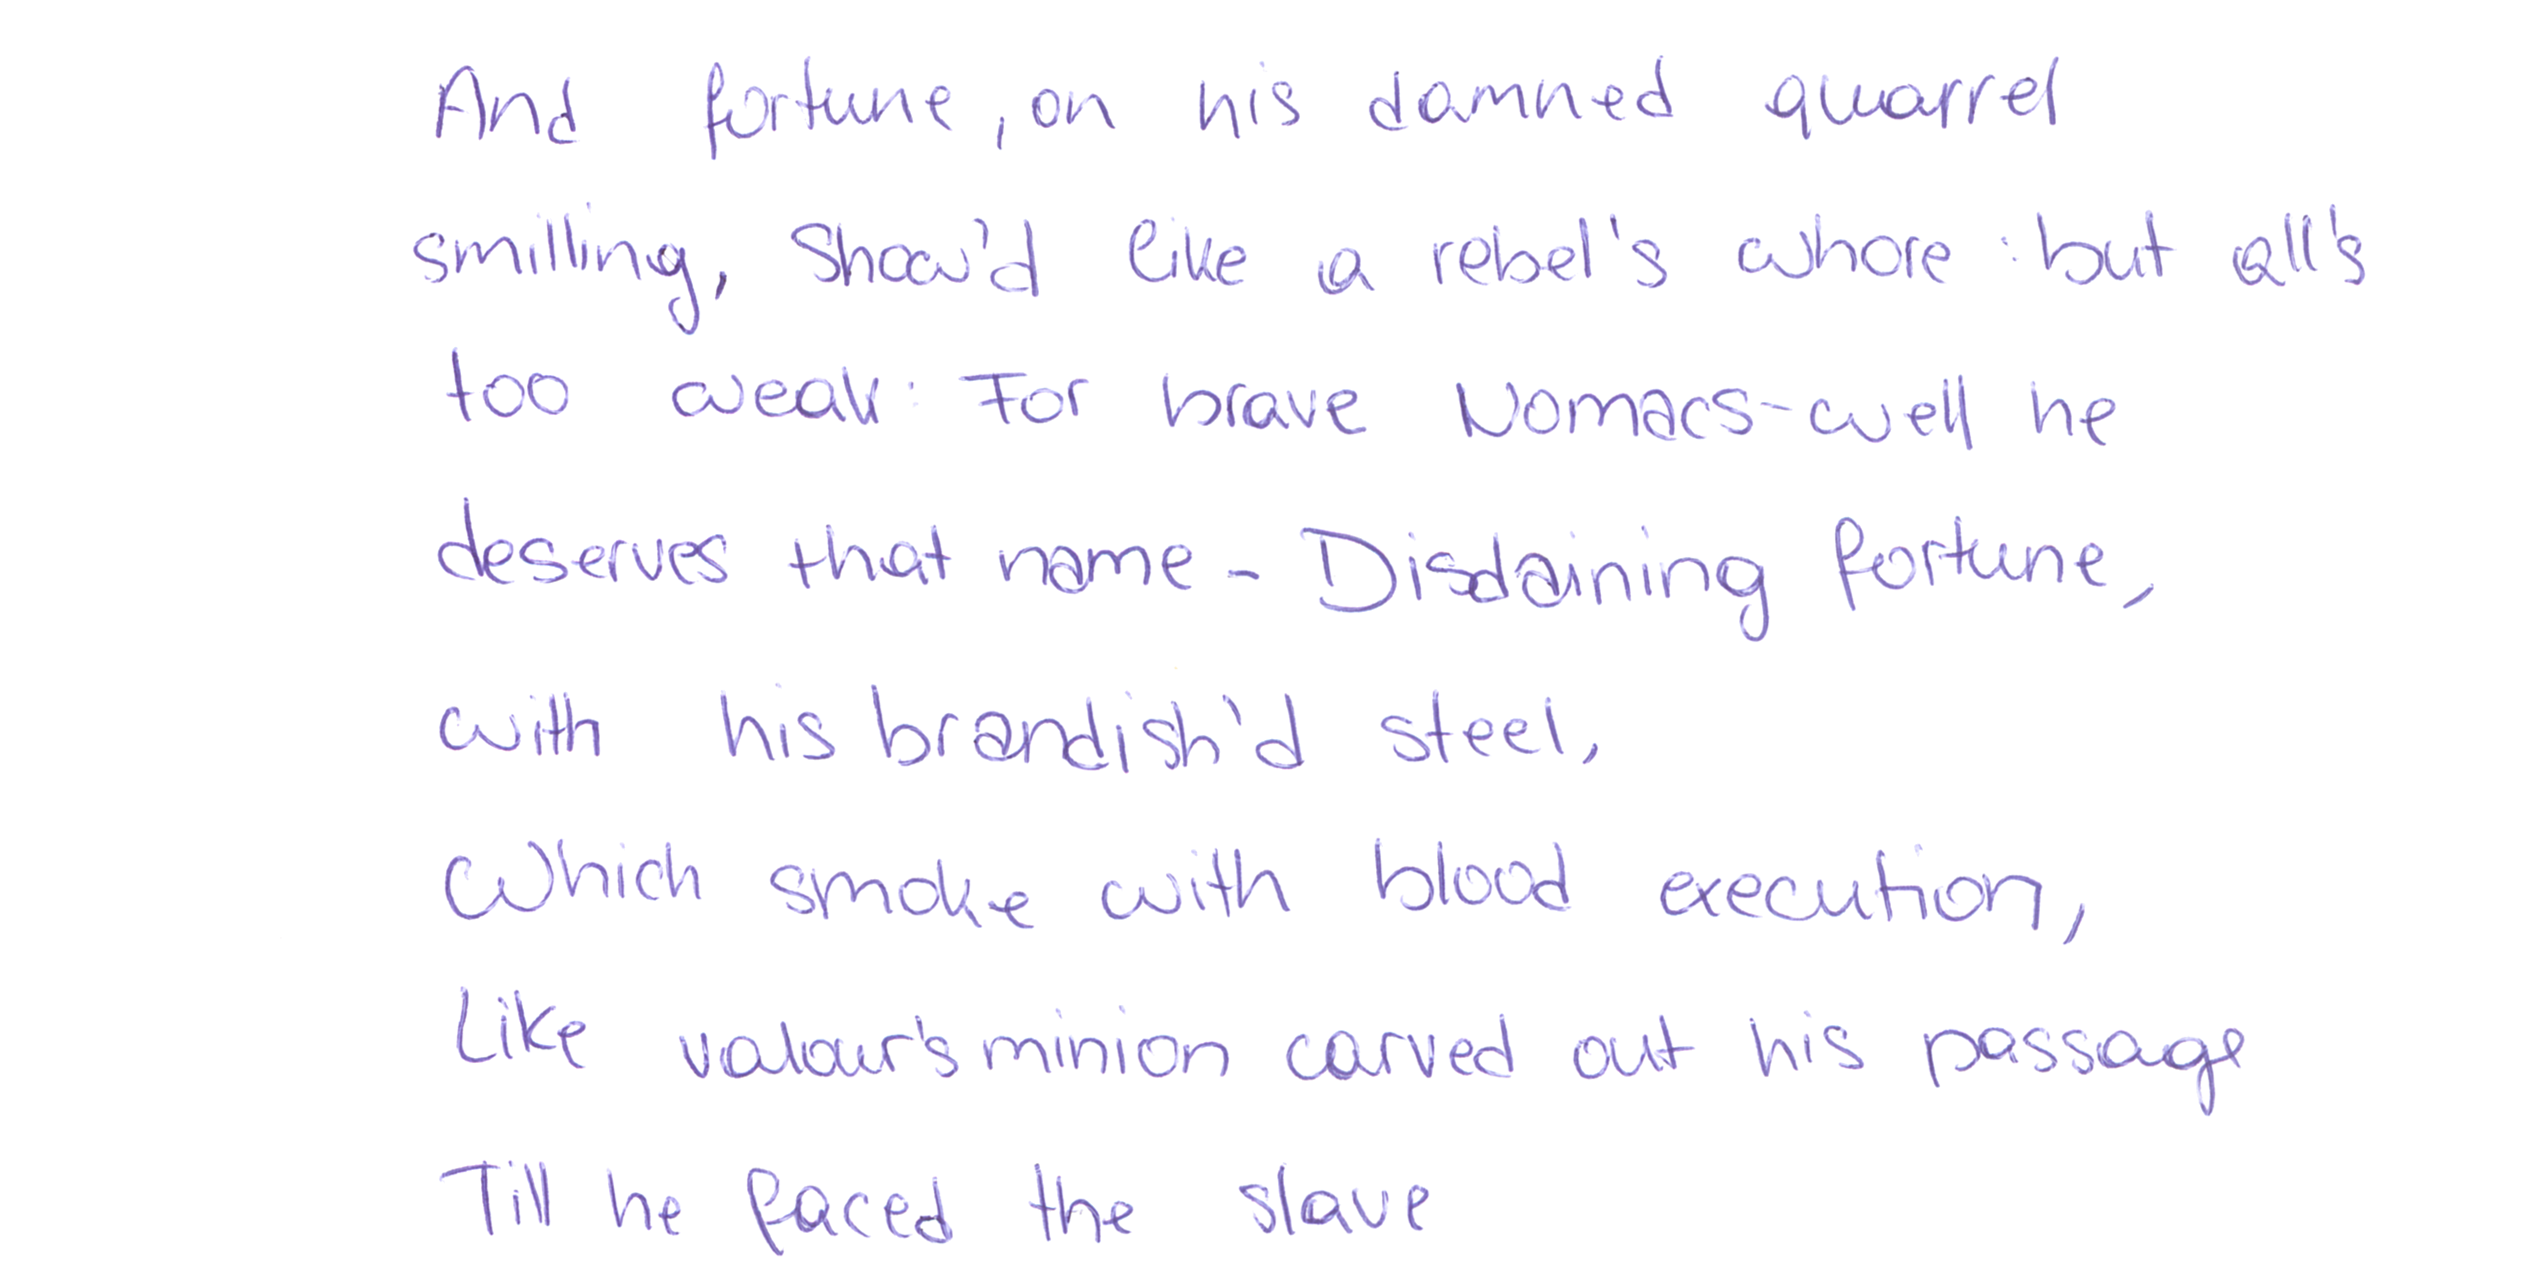 And fortune, on his damned quarrel
smilling, Show'd like a rebel's whore : but all's
too weak: For brave Nomacs-well he
deserves that name - Disdaining fortune,
with his brandish'd steel,
Which smoke with blood execution,
Like valour's minion carved out his passage
Till he faced the slave